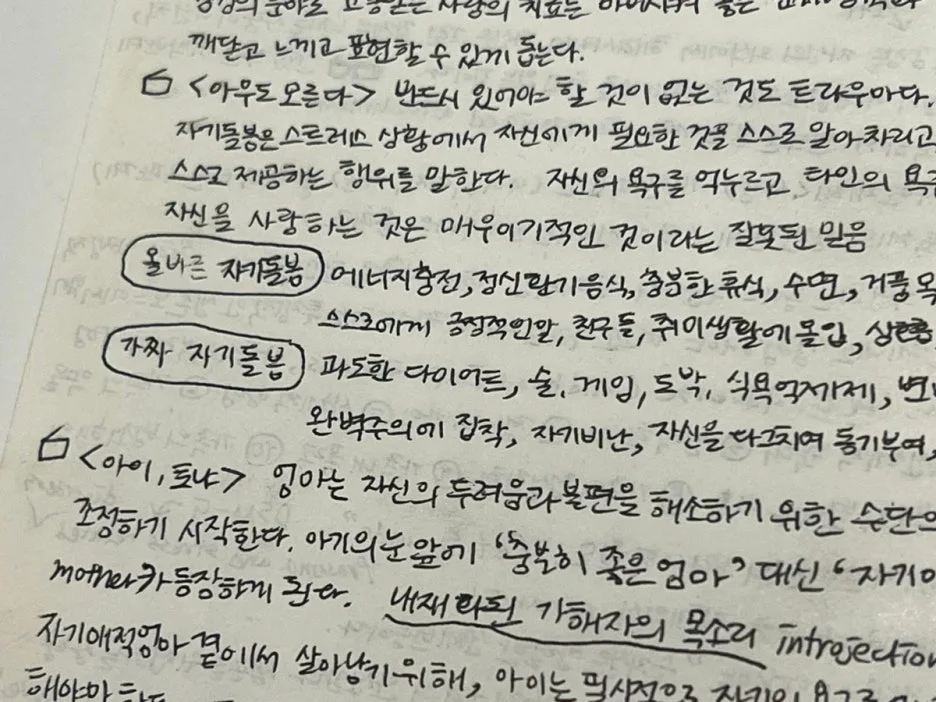 사람의 치료는
깨닫고 느끼고 표현할 수 있게 돕는다.
<아무도 모른다> 반드시 있어야 할 것이 없는 것도 트라우마다.
자기돌봄은 스트레스 상황에서 자신에게 필요한 것을 스스로 알아차리고
스스로 제공하는 행위를 말한다. 자신의 욕구를 억누르고 타인의 욕구
자신을 사랑하는 것은 매우 이기적인 것이라는 잘못된 믿음
올바른 자기돌봄 에너지충전, 정신환기음식, 충분한 휴식, 수면, 거품목
스스로에게 긍정적인말, 친구들, 취미생활에 몰입,
가짜 자기돌봄 과도한 다이어트, 술, 게임, 도박, 식욕억제제,
완벽주의에 집착, 자기비난, 자신을 다그치며 동기부여,
<아이, 토냐> 엄마는 자신의 두려움과 불편을 해소하기 위한 수단으
조정하기 시작한다. 아기의 눈 앞에 '충분히 좋은 엄마' 대신 '자기애
mother가 등장하게 된다. 내재화된 가해자의 목소리 introjection
자기애적엄마 곁에서 살아남기 위해, 아이는 필사적으로 자기의
해야만 한다